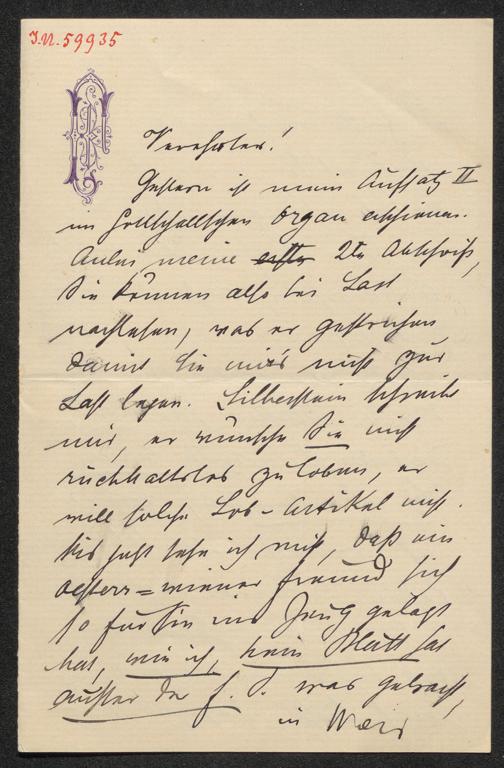 I.N. 59935
Verehrter!
Gestern ist mein Aufsatz II
im Gottschallschen Organ erschienen.
meine erste 2te Abschrift,
Sie können also bei Last
nachlesen, was er gestrichen
damit Sie mir's nicht zur
Last legen. Silberstein schreibt
mir, er wünsche Sie nicht
rückhaltslos zu loben, er
will solche Lob-Artikel nicht.
Bis jetzt sehe ich nicht, daß ein
oesterr=wiener Freund sich
so für Sie ins Zeug gelegt
hat, wie ich, kein Blatt hat
außer der f. P. was gebracht,
in